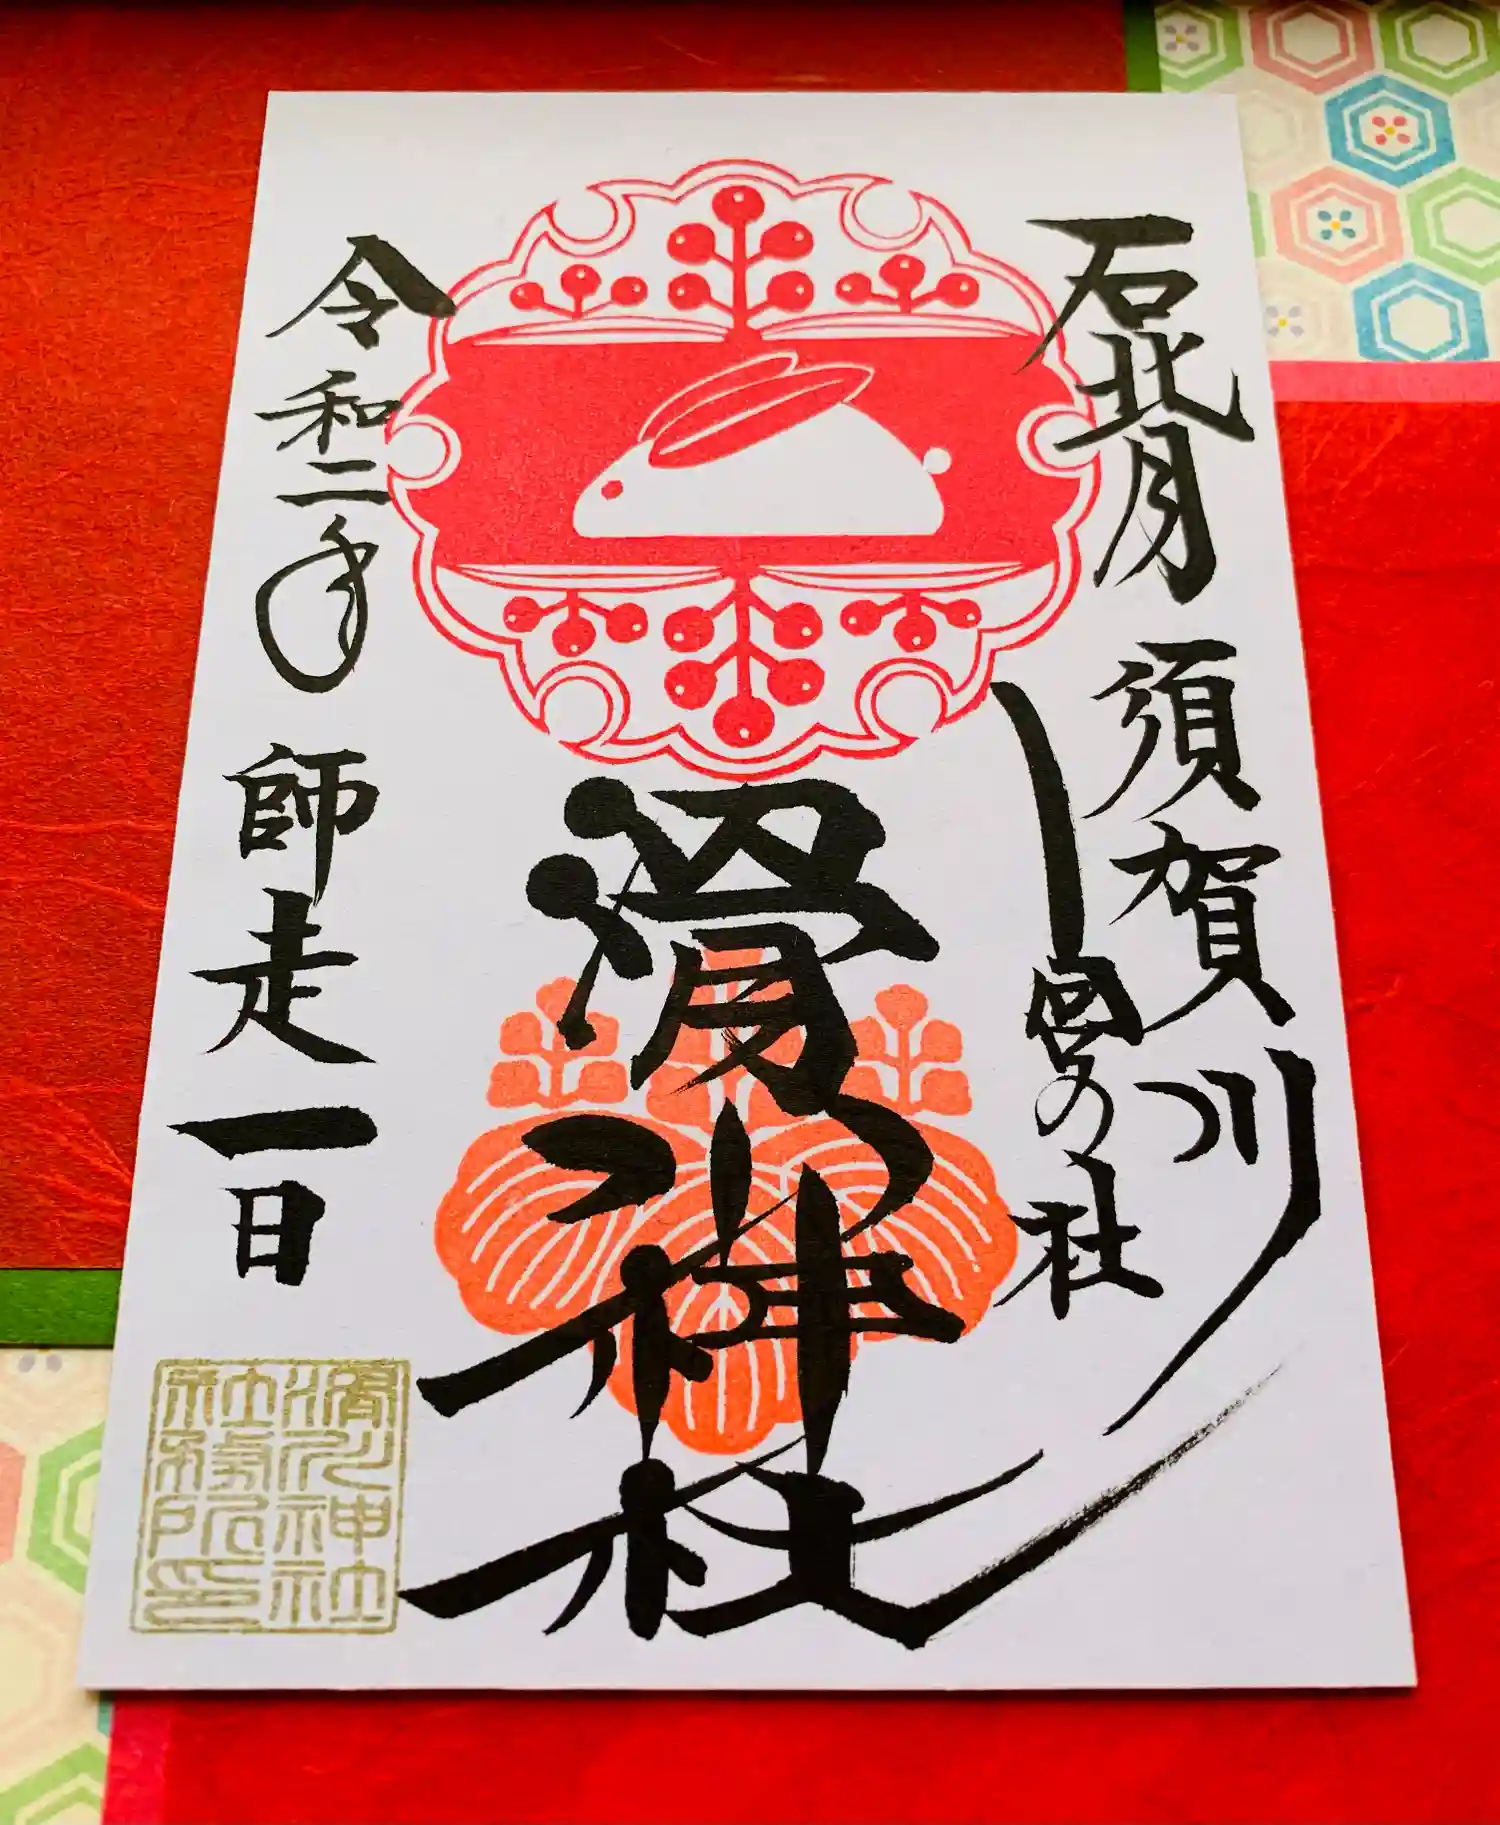 石背 須賀川
の社
滑川神社
令和二年 師走 一日
滑川神社
社務所印